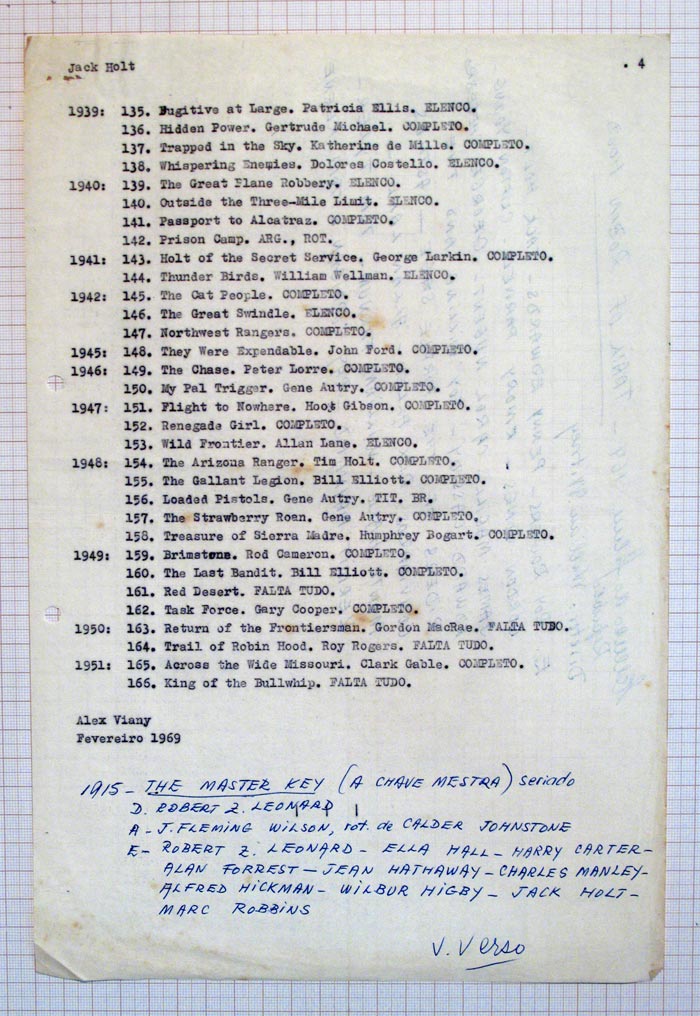 Jack Holt . 4
1939: 135. Fugitive at Large. Patricia Ellis. ELENCO.
136. Hidden Power. Gertrude Michael. COMPLETO.
137. Trapped in the Sky. Katherine de Mille. COMPLETO.
138. Whispering Enemies. Dolores Costello. ELENCO.
1940: 139. The Great Plane Robbery. ELENCO.
140. Outside the Three-Mile Limit. ELENCO.
141. Passport to Alcatraz. COMPLETO.
142. Prison Camp. ARG., ROT.
1941: 143. Holt of the Secret Service. George Larkin. COMPLETO.
144. Thunder Birds. William Wellman. ELENCO.
1942: 145. The Cat People. COMPLETO.
146. The Great Swindle. ELENCO.
147. Northwest Rangers. COMPLETO.
1945: 148. They Were Expendable. John Ford. COMPLETO.
1946: 149. The Chase. Peter Lorre. COMPLETO.
150. My Pal Trigger. Gene Autry. COMPLETO.
1947: 151. Flight to Nowhere. Hoot Gibson. COMPLETO.
152. Renegade Girl. COMPLETO.
153. Wild Frontier. Allan Lane. ELENCO.
1948: 154. The Arizona Ranger. Tim Holt. COMPLETO.
155. The Gallant Legion. Bill Elliott. COMPLETO.
156. Loaded Pistols. Gene Autry. TIT. BR.
157. The Strawberry Roan. Gene Autry. COMPLETO.
158. Treasure of Sierra Madre. Humphrey Bogart. COMPLETO.
1949: 159. Brimstone. Rod Cameron. COMPLETO.
160. The Last Bandit. Bill Elliott. COMPLETO.
161. Red Desert. FALTA TUDO.
162. Task Force. Gary Cooper. COMPLETO.
1950: 163. Return of the Frontiersman. Gordon MacRae. FALTA TUDO.
164. Trail of Robin Hood. Roy Rogers. FALTA TUDO.
1951: 165. Across the Wide Missouri. Clark Gable. COMPLETO.
166. King of the Bullwhip. FALTA TUDO.
Alex Viany
Fevereiro 1969
1915 - THE MASTER KEY (A CHAVE MESTRA) seriado
D. ROBERT Z. LEONARD
A - J. FLEMING WILSON, rot. de CALDER JOHNSTONE
E - ROBERT Z. LEONARD - ELLA HALL - HARRY CARTER -
ALAN FORREST - JEAN HATHAWAY - CHARLES MANLEY -
ALFRED HICKMAN - WILBUR HIGBY - JACK HOLT -
MARC ROBBINS
V. Verso